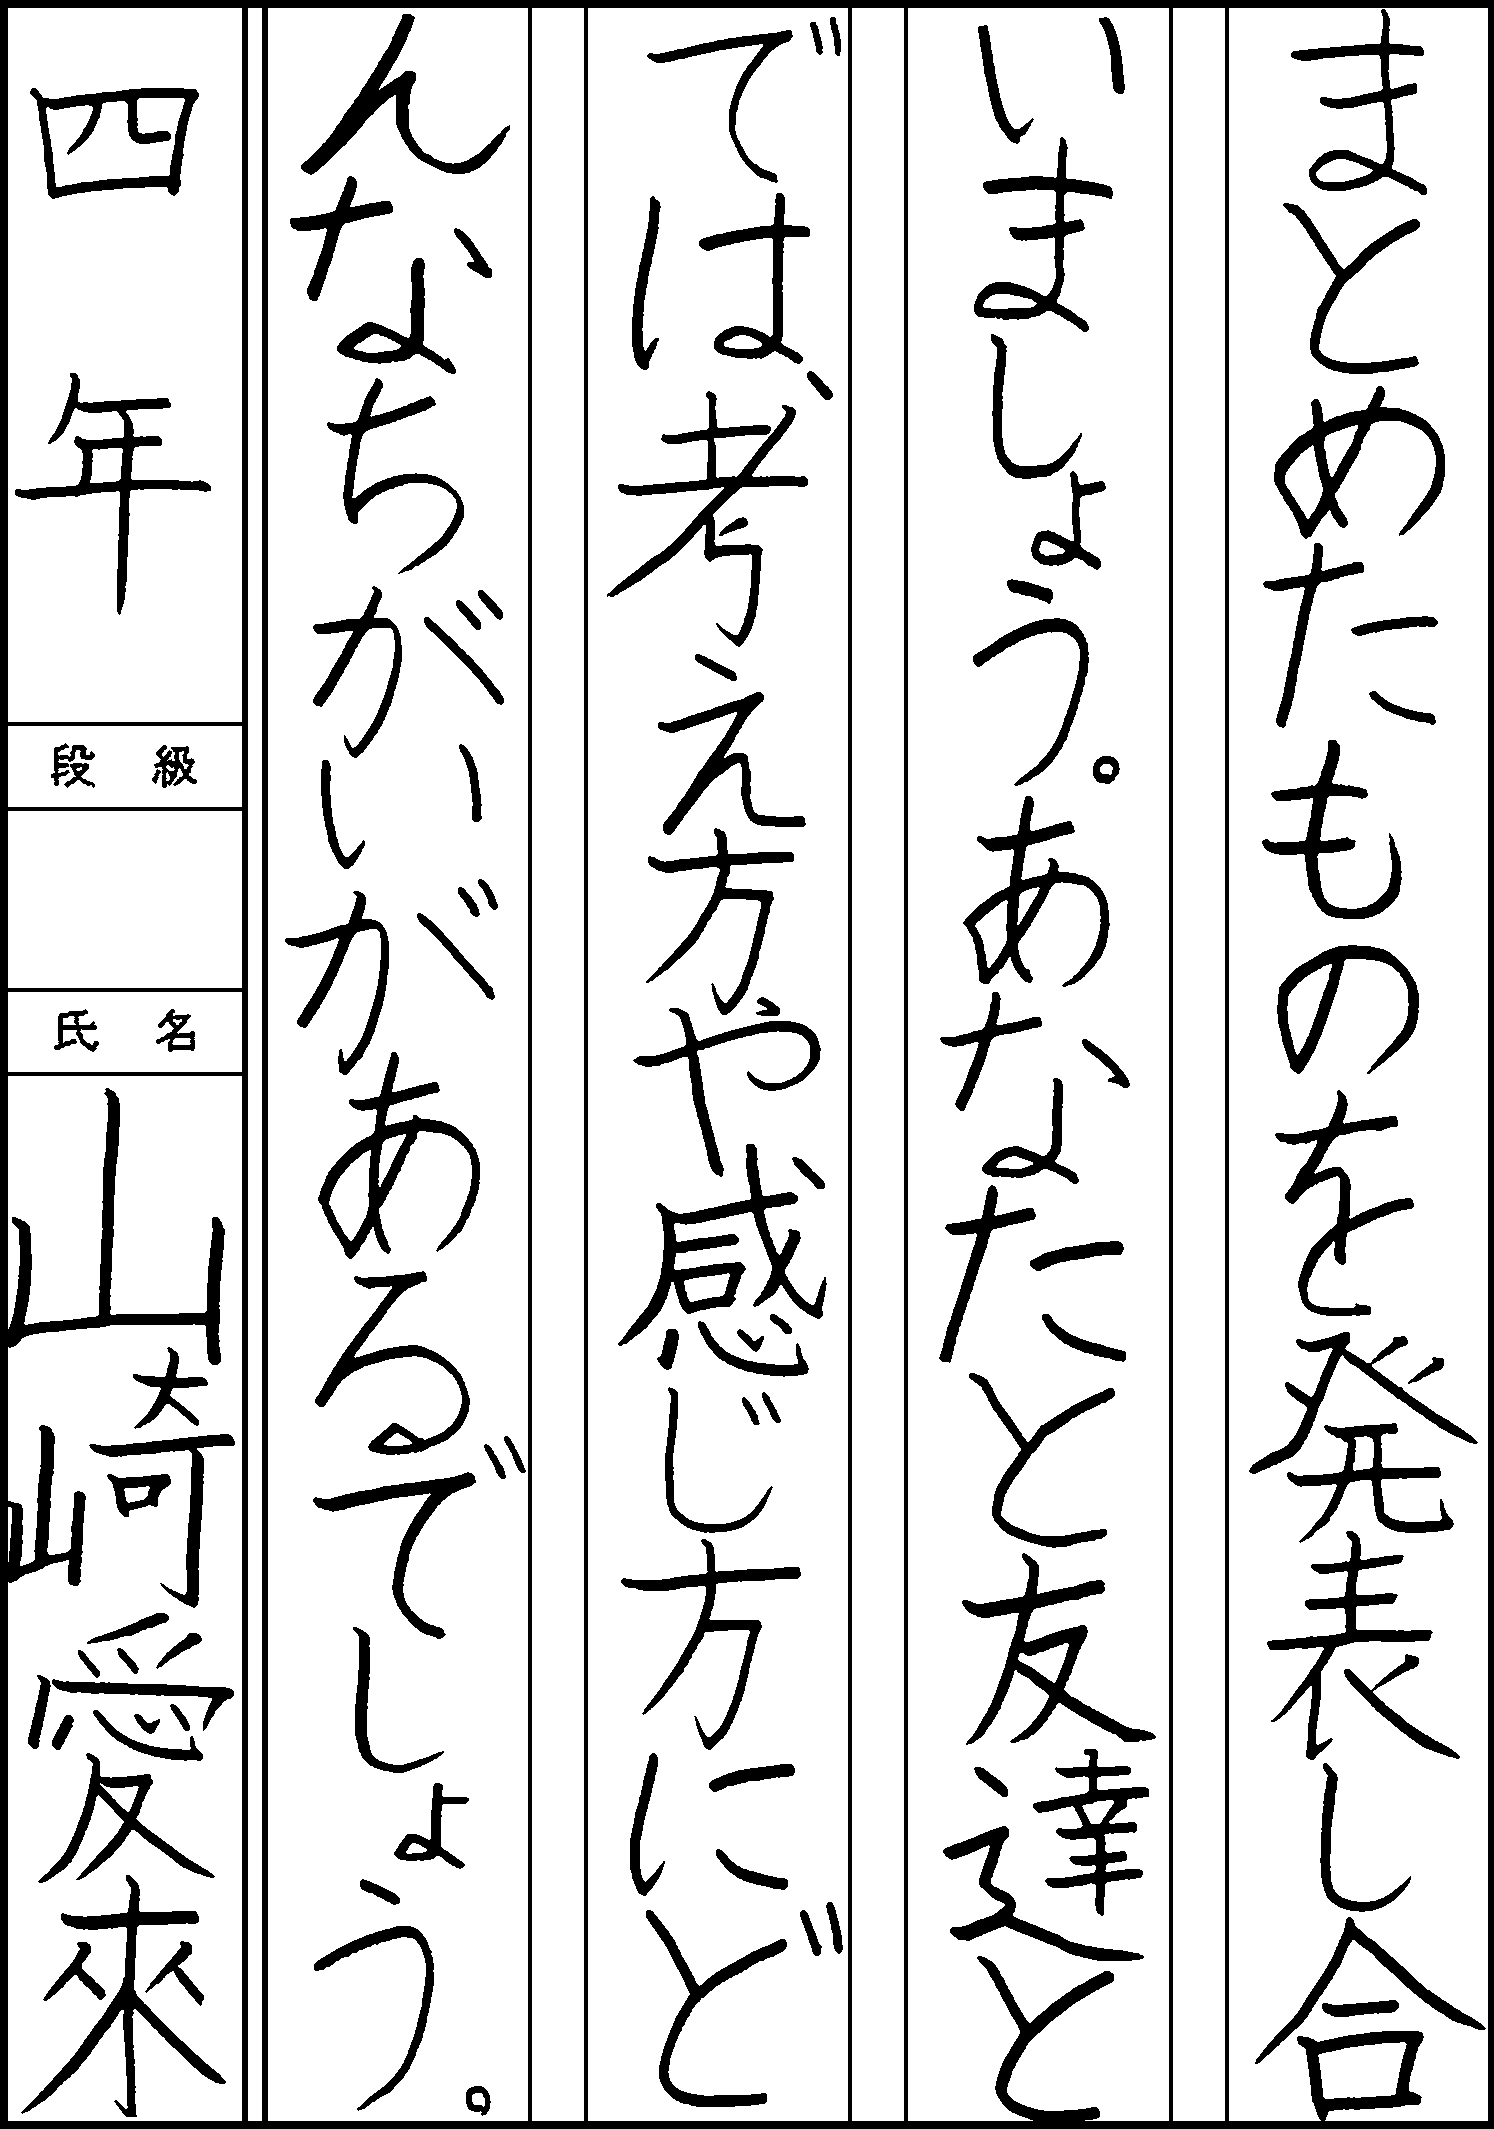 まとめたものを発表し合
いましょう。あなたと友達と
では、考え方や感じ方にど
んなちがいがあるでしょう。
四年
段級
氏名
山崎愛來